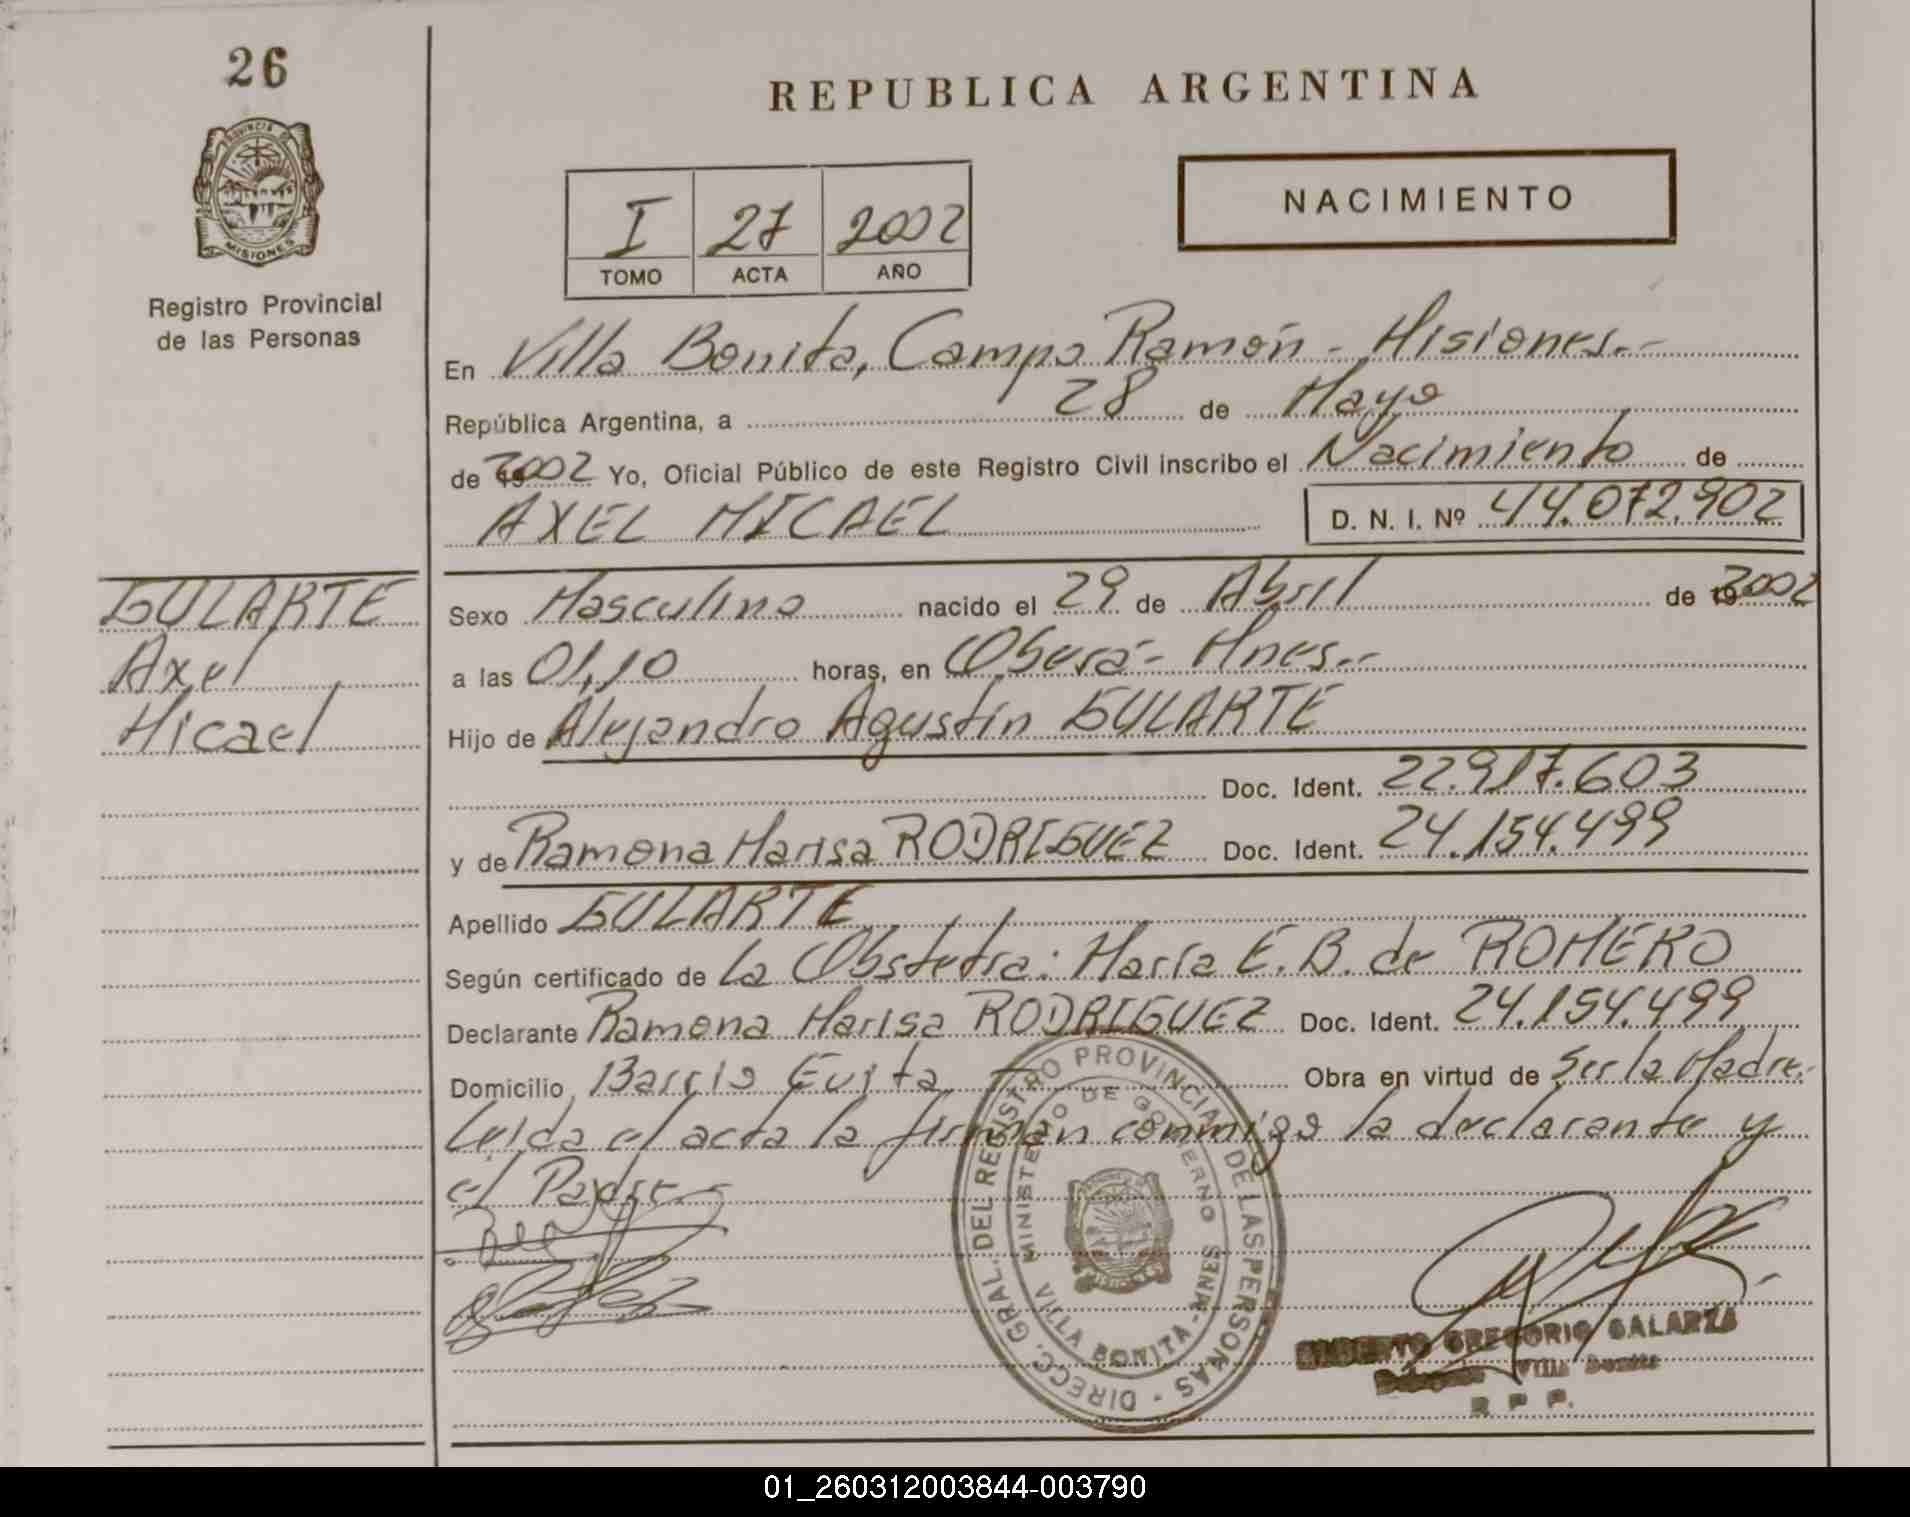 26
REPUBLICA ARGENTINA
PROVINCIA DE
MISIONES
Registro Provincial
de las Personas
NACIMIENTO
I 27 2002
TOMO ACTA AÑO
En Villa Bonita, Campo Ramón - Misiones.-
República Argentina, a 28 de Mayo
de 2002 Yo, Oficial Público de este Registro Civil inscribo el Nacimiento de
AXEL MICAEL D. N. I. Nº 44.072.902
GULARTE
Axel
Micael
Sexo Masculino nacido el 29 de Abril de 192002
a las 01,10 horas, en Oberá - Mnes.-
Hijo de Alejandro Agustín GULARTE
Doc. Ident. 22.917.603
y de Ramona Marisa RODRIGUEZ Doc. Ident. 24.154.499
Apellido GULARTE
Según certificado de la Obstetra: María E. B. de ROMERO
Declarante Ramona Marisa RODRIGUEZ Doc. Ident. 24.154.499
Domicilio Barrio Evita Obra en virtud de Ser la Madre.
Leida el acta la firman conmigo la declarante y
el Padre.-
DIRECC. GRAL. DEL REGISTRO PROVINCIAL DE LAS PERSONAS
MINISTERIO DE GOBIERNO
VILLA BONITA - MNES
GREGORIO GALARZA
Villa Bonita
R P P.
01_260312003844-003790